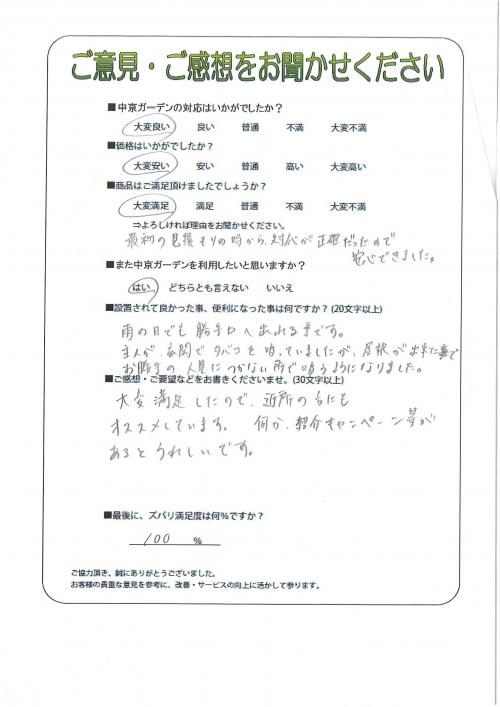 ご意見・ご感想をお聞かせください
■中京ガーデンの対応はいかがでしたか？
大変良い 良い 普通 不満 大変不満
■価格はいかがでしたか？
大変安い 安い 普通 高い 大変高い
■商品はご満足頂けましたでしょうか？
大変満足 満足 普通 不満 大変不満
⇒よろしければ理由をお聞かせください。
最初の見積もりの時から、対応が正確だったので
安心できました。
■また中京ガーデンを利用したいと思いますか？
はい どちらとも言えない いいえ
■設置されて良かった事、便利になった事は何ですか？(20文字以上)
雨の日でも勝手口へ出れる事です。
主人が、玄関でタバコを吸っていましたが、屋根が出来た事で
お勝手の人見につかない所で吸うようになりました。
■ご感想・ご要望などをお書きくださいませ。(30文字以上)
大変満足したので、近所の方にも
オススメしています。 何か、紹介キャンペーン等が
あるとうれしいです。
■最後に、ズバリ満足度は何％ですか？
100 %
ご協力頂き、誠にありがとうございました。
お客様の貴重な意見を参考に、改善・サービスの向上に活かして参ります。